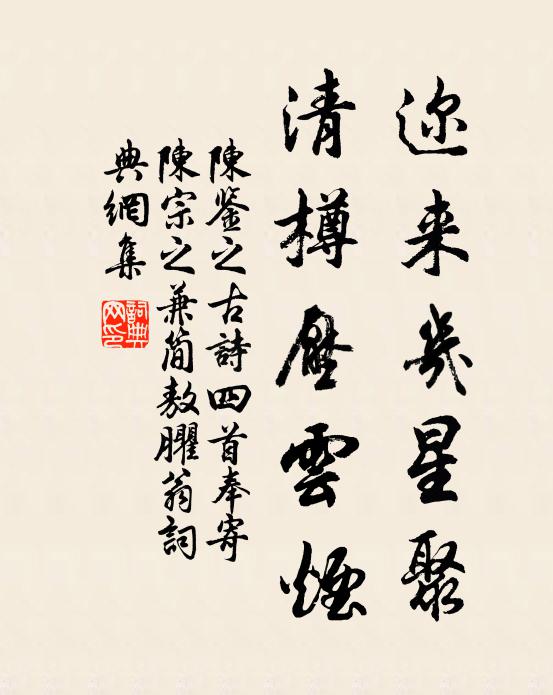 迩来几星聚
清樽壓雲煙
陳鉴之古詩四首奉寄
陳宗之兼简敖臞翁詞
典網集
詞典
网印